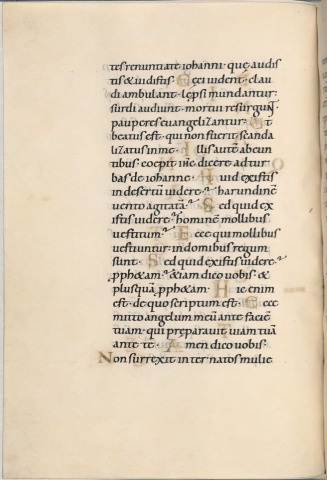 tes renuntiate iohanni · que audis
tis & uidistis · Ceci uident · clau
di ambulant · lepsi mundantur:
surdi audiunt · mortui resurgunt
pauperes euangelizantur: Et
beatus est · qui non fuerit scanda
lizatus in me · Illis aute abeun
tibus · coepit ihs dicere ad tur
bas de iohanne · Quid existis
in desertu uidere? harundine
uento agitata? Sed quid ex
istis uidere? homine mollibus
uestitum? Ecce qui mollibus
uestiuntur: in domibus regum
sunt · Sed quid existis uidere?
pph&am? &iam dico uobis · &
plusqua pph&am · Hic enim
est · de quo scriptum est · Ecce
mitto angelum meu ante facie
tuam · qui preparauit uiam tua
ante te · Amen dico uobis ·
Non surrexit inter natos mulie